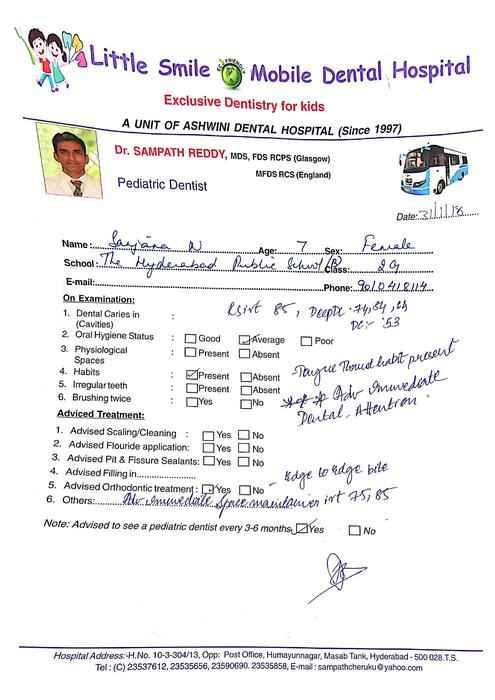 Little Smile ECO FRIENDLY Mobile Dental Hospital
Exclusive Dentistry for kids
A UNIT OF ASHWINI DENTAL HOSPITAL (Since 1997)
Dr. SAMPATH REDDY, MDS, FDS RCPS (Glasgow)
MFDS RCS (England)
Pediatric Dentist
Date: 31/1/18
Name: Sanjana N Age: 7 Sex: Female
School: The Hyderabad Public School/R Class: 2G
E-mail: Phone: 9010418114
On Examination:
1. Dental Caries in (Cavities) : 85, Deep DC - 74, 84,
DC - 53
2. Oral Hygiene Status : Good Average Poor
3. Physiological Spaces : Present Absent
4. Habits : Present Absent Tongue Thrust habit present
5. Irregular teeth : Present Absent Adv Immediate
6. Brushing twice : Yes No Dental Attention.
Adviced Treatment:
1. Advised Scaling/Cleaning : Yes No
2. Advised Flouride application: Yes No
3. Advised Pit & Fissure Sealants: Yes No
4. Advised Filling in
5. Advised Orthodontic treatment: Yes No - Edge to Edge bite
6. Others: Adv. immediate Space maintainer irt 75, 85
Note: Advised to see a pediatric dentist every 3-6 months Yes No
Hospital Address:-H.No. 10-3-304/13, Opp: Post Office, Humayunnagar, Masab Tank, Hyderabad - 500 028.T.S.
Tel : (C) 23537612, 23535656, 23590690. 23535858, E-mail : sampathcheruku@yahoo.com